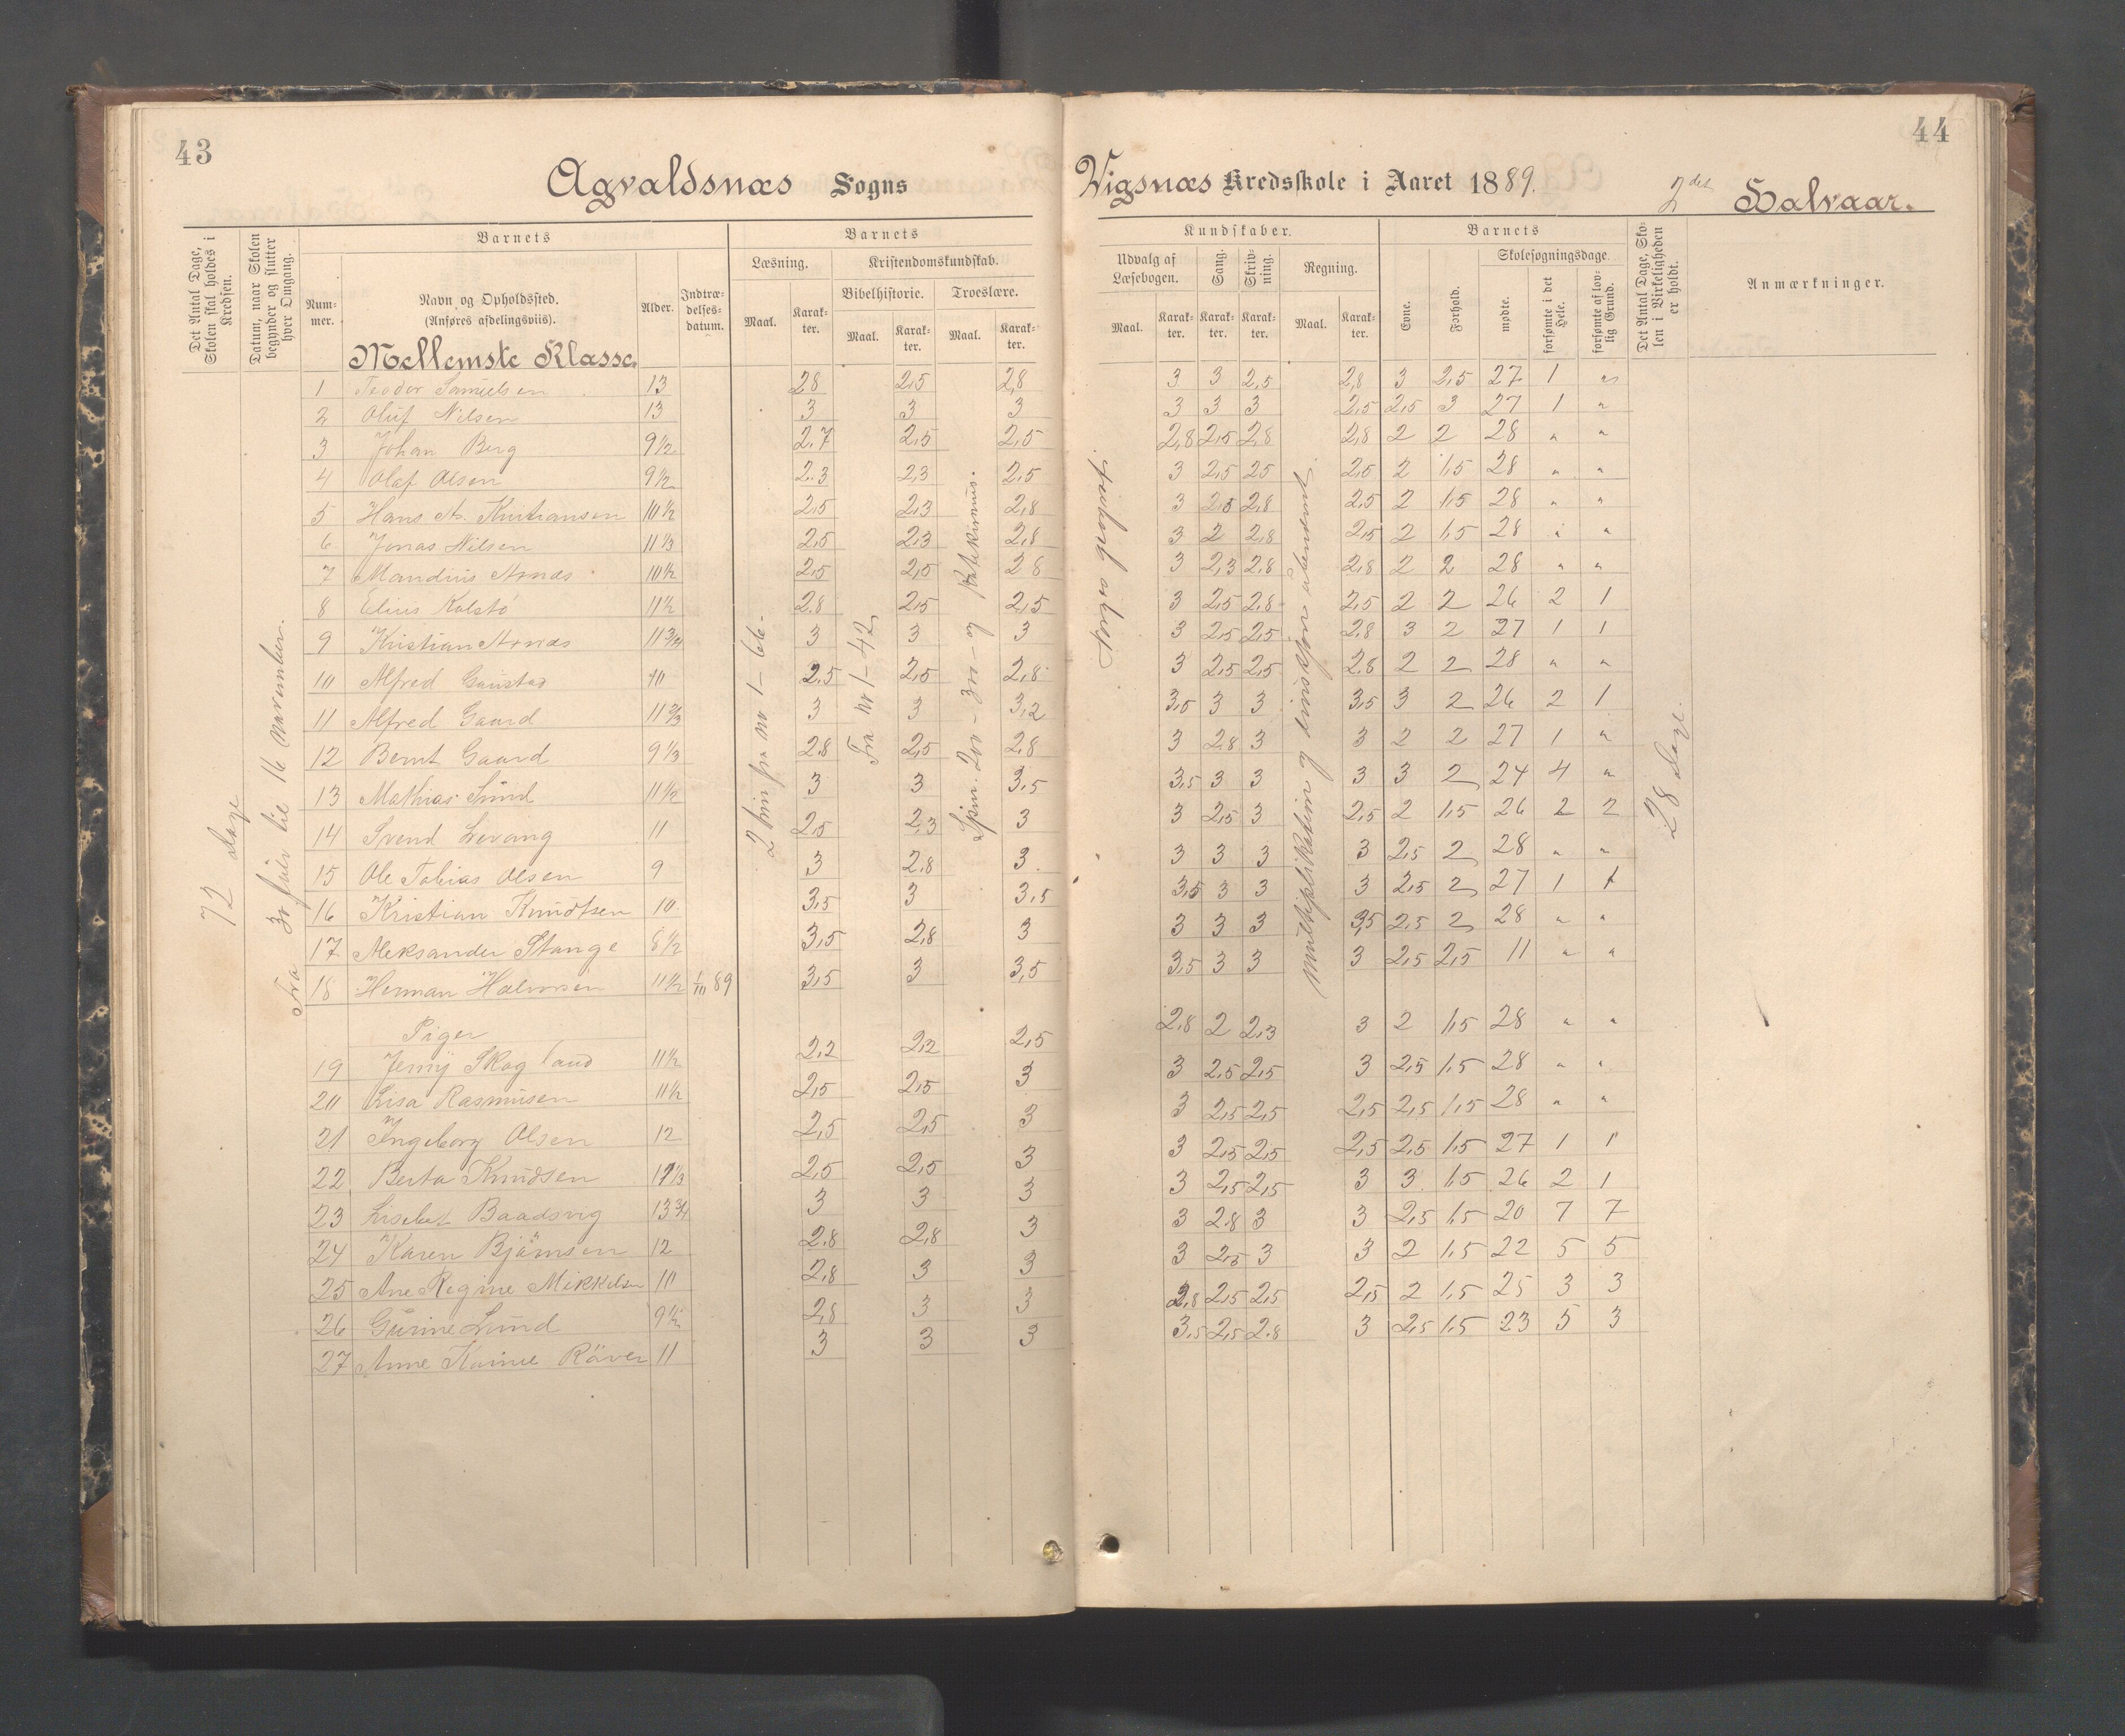 43
Agvaldsnæs Sogns
Det Antal Dage, Skolen skal holdes i Kredsen.
Datum, naar Skolen begynder og slutter hver Omgang.
Barnets
Nummer.
Navn og Opholdssted.
(Anføres afdelingsviis).
Mellemste Klasse.
Alder.
Indtrædelsesdatum.
Barnets
Læsning.
Maal.
Karakter.
Kristendomskundskab.
Bibelhistorie.
Maal.
Karakter.
Troeslære.
Maal.
Karakter.
72 dage
Fra 30 juli til 16 november.
2 trin fra no 1 – 66 –
Fra no 1 – 42
Spm. 200 – 300 – og Katekismus.
1 Teodor Samuelsen 13 28 2,5 2,8
2 Oluf Nilsen 13 3 3 3
3 Johan Berg 9½ 2.7 2,5 2,5
4 Olaf Olsen 9½ 2.3 2,3 2,5
5 Hans A. Kristiansen 10½ 2,5 2,3 2,8
6 Jonas Nilsen 11⅓ 2,5 2,3 2,8
7 Mandius Arnæs 10½ 2,5 2,5 28
8 Elius Kolstö 11½ 2.8 2,5 2,5
9 Kristian Arnæs 11¾ 3 3 3
10 Alfred Gaustad 10 2.5 2,5 2,8
11 Alfred Gaard 11⅔ 3 3 3,2
12 Bernt Gaard 9⅓ 2.8 2,5 2.8
13 Mathias Lund 11½ 3 3 3,5
14 Svend Levang 11 2,5 2,3 3
15 Ole Tobias Olsen 9 3 2,8 3.
16 Kristian Knudtsen 10. 3,5 3 3,5
17 Aleksander Stange 8½ 3,5 2,8 3
18 Herman Halvorsen 11½ 1/11 89 3,5 3 3,5
Piger
19 Jenny Skogland 11½ 2,2 2,2 2,5
20 Lisa Rasmusen 11½ 2,5 2,5 3
21 Ingeborg Olsen 12 2,5 2,5 3
22 Berta Knudsen 11⅓ 2,5 2,5 3
23 Lisebet Baadsvig 13¾ 3 3 3
24 Karen Bjørnsen 12 2.8 2,8 3
25 Ane Regine Mikkelsen 10 2,8 3 3
26 Gurine Lund 9½ 2,8 3 3
27 Anne Karine Röver 11 3 3 3
44
Vigsnæs Kredsskole i Aaret 1889. 2det Halvaar.
Kundskaber.
Udvalg af Læsebogen.
Maal.
Karakter.
Sang.
Karakter.
Skrivning.
Karakter.
Regning.
Maal.
Karakter.
Barnets
Evne.
Forhold.
Skolesøgningsdage.
mødte.
forsømte i det Hele.
forsømte af lovlig Grund.
Det Antal Dage, Skolen i Virkeligheden er holdt.
Anmærkninger.
multiplikation og division
28 dage.
3 3 2,5 2,8 3 2,5 27 1 "
3 3 3 2,5 2,5 3 27 1 "
2,8 2,5 2,8 2,8 2 2 28 " "
3 2,5 25 2,5 2 1,5 28 " "
3 2,5 2,8 2,5 2 1,5 28 " "
3 2 2,8 2,5 2 1,5 28 " "
3 2,3 2.8 2,8 2 2 28 " "
3 2,5 2,8 2,5 2 2 26 2 1
3 2,5 2,5 2.8 3 2 27 1 1
3 2,5 2,5 2.8 2 2 28 " "
3,5 3 3 3,5 3 2 26 2 1
3 2,8 3 3 2 2 27 1 "
3,5 3 3 3 3 2 24 4 "
3 2,5 3 2,5 2 1,5 26 2 2
3 3 3 3 2,5 2 28 " "
3,5 3 3 3 2,5 2 27 1 1
3 3 3 3,5 2,5 2 28 " "
3,5 3 3 3 2,5 2,5 11 " "
2,8 2 2,3 3 2 1,5 28 " "
3 2,5 2,5 3 2,5 1.5 28 " "
3 2,5 2,5 2,5 2,5 1,5 28 " "
3 2,5 2,5 2,5 2,5 1,5 27 1 1
3 2,5 2,5 3 3 1,5 26 2 1
3 2.8 3 3 2,5 1,5 20 7 7
3 2,5 3 3 2 1.5 22 5 5
2,8 2,5 2,5 2,5 2 1.5 25 3 3
3,5 2,5 2.8 3 2,5 1.5 23 5 3